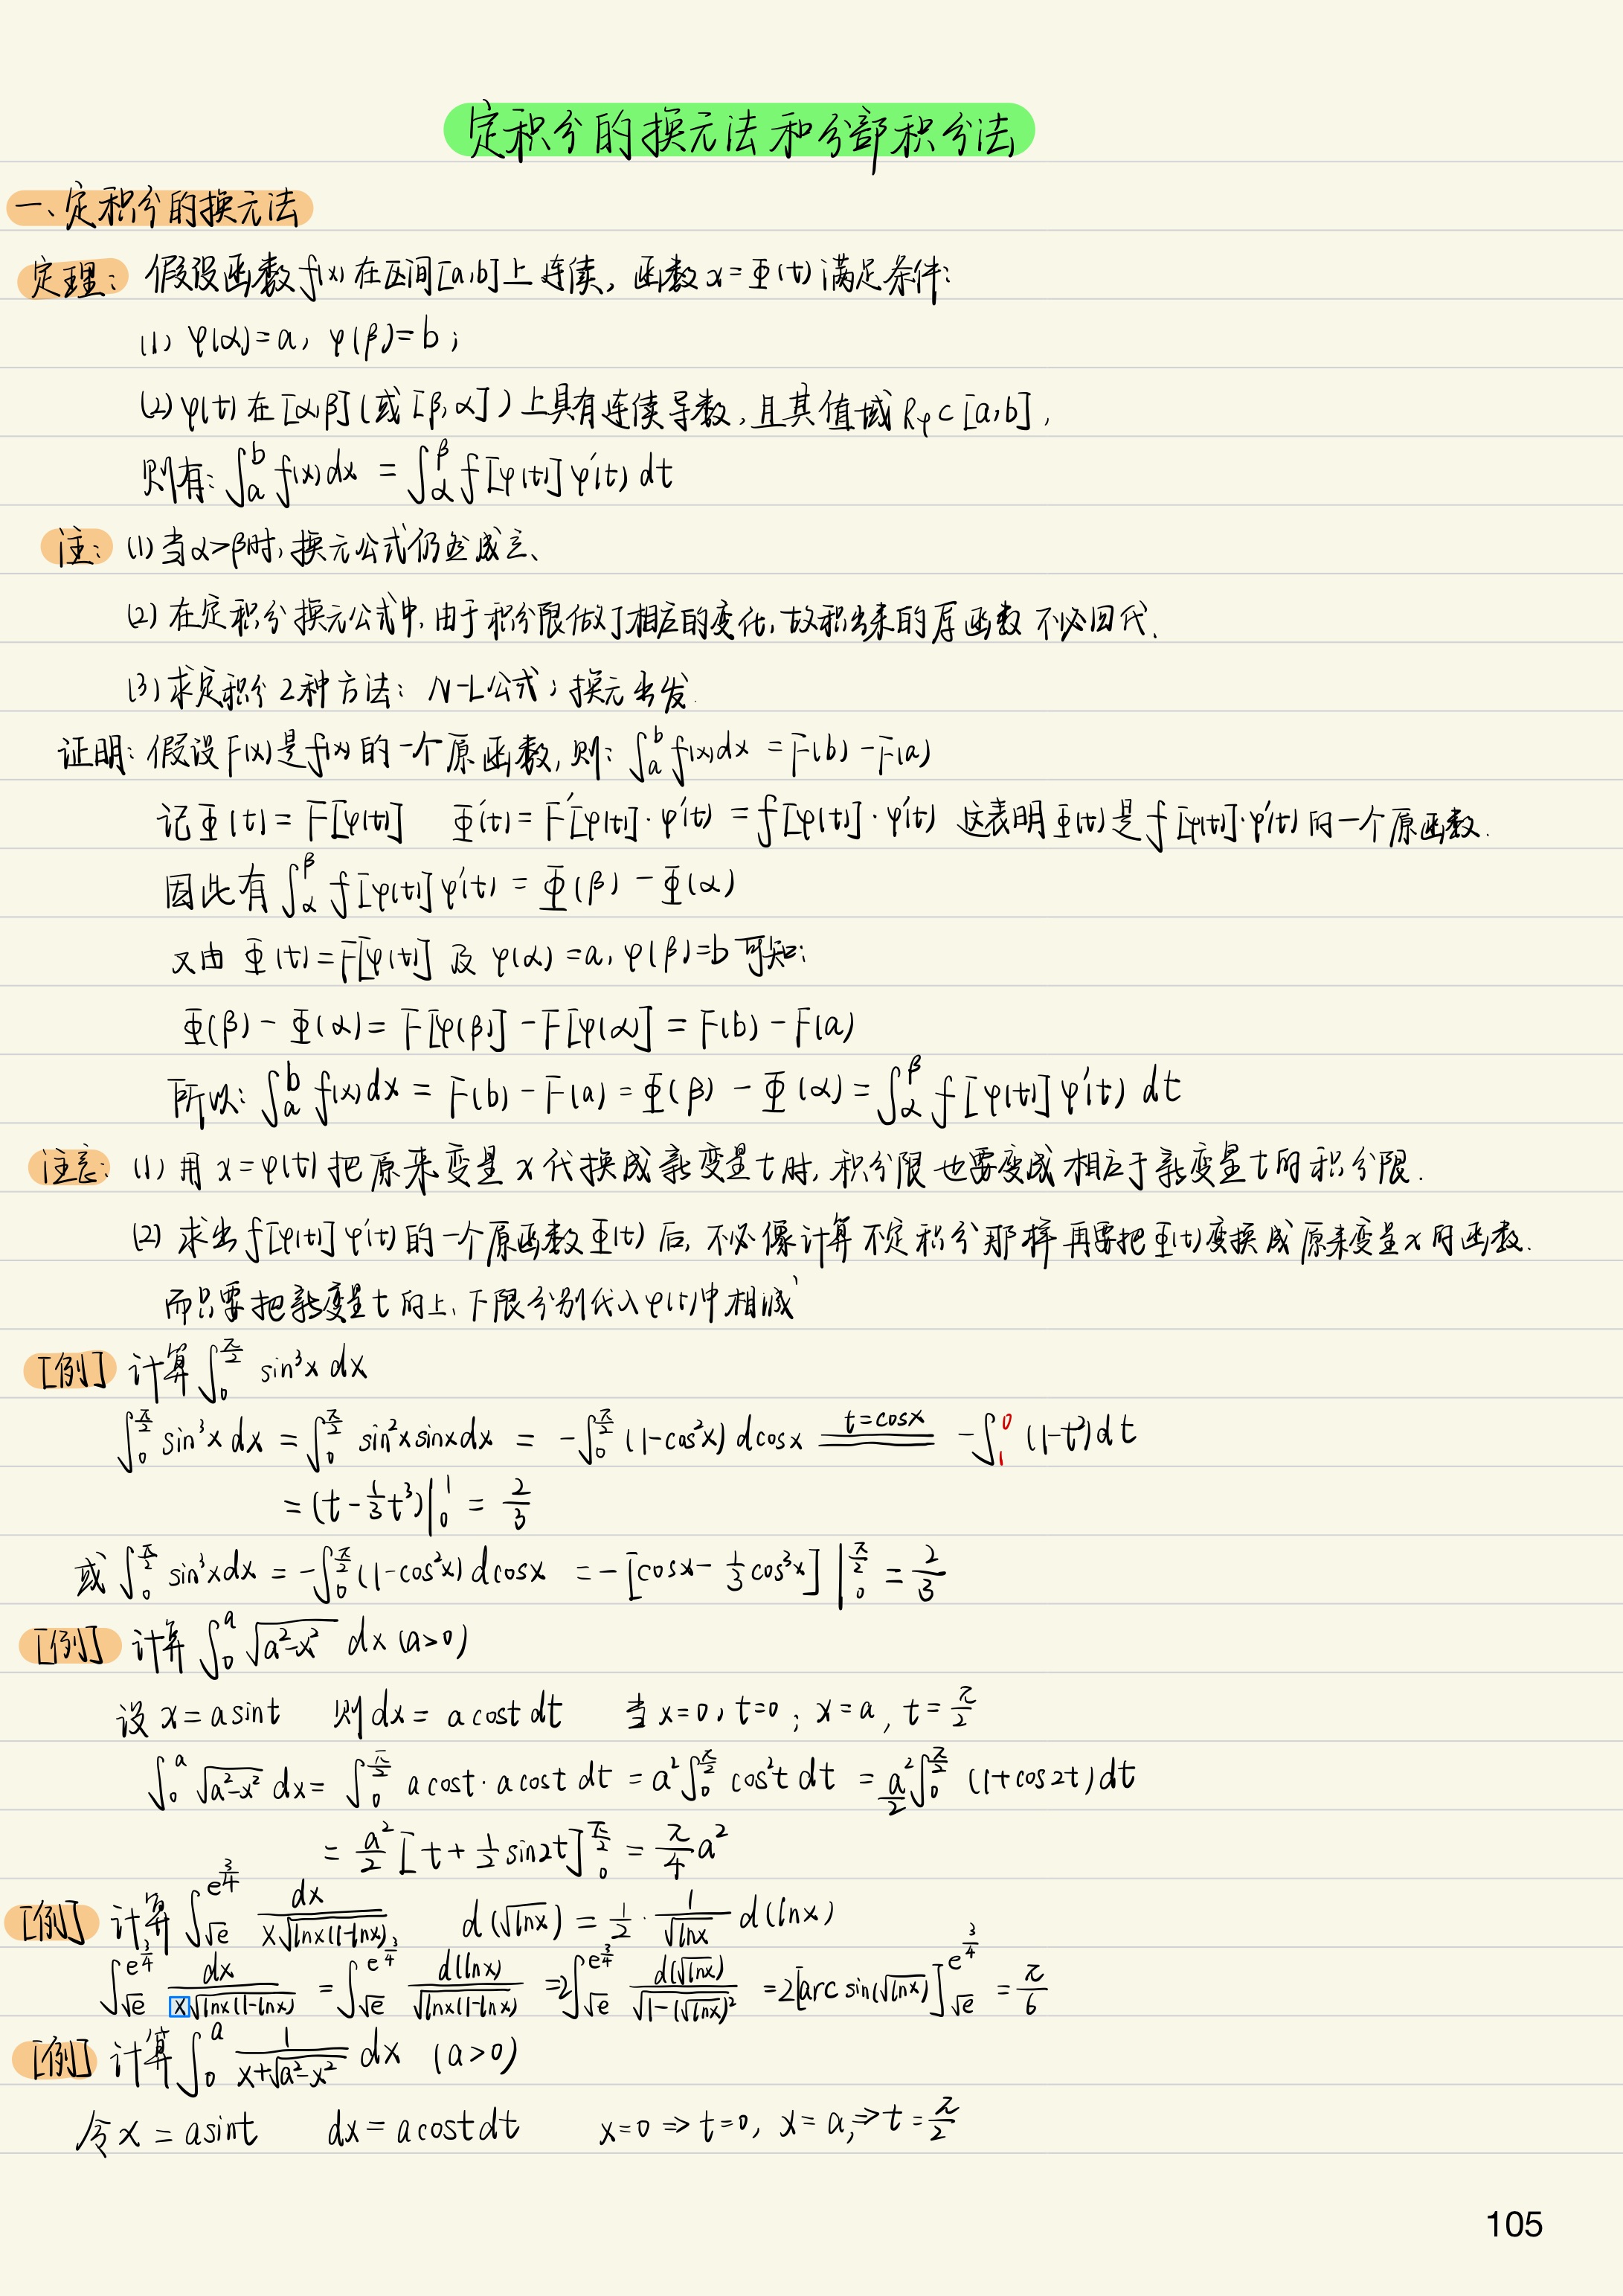 定积分的换元法和分部积分法
一、定积分的换元法
定理: 假设函数f(x)在区间[a,b]上连续, 函数 x=Φ(t) 满足条件:
(1) φ(α)=a, φ(β)=b;
(2) φ(t) 在 [α,β] (或 [β,α]) 上具有连续导数, 且其值域 Rφ⊂[a,b],
则有: ∫_a^b f(x)dx = ∫_α^β f[φ(t)]φ′(t) dt
注: (1) 当α>β时, 换元公式仍然成立、
(2) 在定积分换元公式中, 由于积分限做了相应的变化, 故积出来的原函数不必回代、
(3) 求定积分2种方法: N-L公式; 换元出发.
证明: 假设F(x)是f(x)的一个原函数, 则: ∫_a^b f(x)dx = F(b) - F(a)
记Φ(t) = F[φ(t)] Φ′(t) = F′[φ(t)]·φ′(t) = f[φ(t)]·φ′(t) 这表明Φ(t)是f[φ(t)]·φ′(t)的一个原函数.
因此有 ∫_α^β f[φ(t)]φ′(t) = Φ(β) - Φ(α)
又由 Φ(t) = F[φ(t)] 及 φ(α)=a, φ(β)=b 可知:
Φ(β) - Φ(α) = F[φ(β)] - F[φ(α)] = F(b) - F(a)
所以: ∫_a^b f(x)dx = F(b) - F(a) = Φ(β) - Φ(α) = ∫_α^β f[φ(t)]φ′(t) dt
注意: (1) 用 x=φ(t) 把原来变量x代换成新变量t时, 积分限也要变成相应于新变量t的积分限.
(2) 求出f[φ(t)]φ′(t)的一个原函数Φ(t)后, 不必像计算不定积分那样再要把Φ(t)变换成原来变量x的函数.
而只要把新变量t的上、下限分别代入φ(t)中相减
[例] 计算 ∫_0^{π/2} sin³x dx
∫_0^{π/2} sin³x dx = ∫_0^{π/2} sin²x sinx dx = -∫_0^{π/2} (1-cos²x) dcosx \xlongequal{t=cosx} -∫_1^0 (1-t²)dt
= (t - 1/3 t³)|_0^1 = 2/3
或 ∫_0^{π/2} sin³x dx = -∫_0^{π/2} (1-cos²x) dcosx = -[cosx - 1/3 cos³x]|_0^{π/2} = 2/3
[例] 计算 ∫_0^a √(a²-x²) dx (a>0)
设 x = a sint 则 dx = a cost dt 当 x=0, t=0; x=a, t=π/2
∫_0^a √(a²-x²) dx = ∫_0^{π/2} a cost · a cost dt = a²∫_0^{π/2} cos²t dt = a²/2 ∫_0^{π/2} (1+cos2t)dt
= a²/2 [t + 1/2 sin2t]_0^{π/2} = π/4 a²
[例] 计算 ∫_{√e}^{e^{3/4}} dx/(x√(lnx(1-lnx))) d(√lnx) = 1/2 · 1/√lnx d(lnx)
∫_{√e}^{e^{3/4}} dx/(x√(lnx(1-lnx))) = ∫_{√e}^{e^{3/4}} d(lnx)/√(lnx(1-lnx)) = 2∫_{√e}^{e^{3/4}} d(√lnx)/√(1-(√lnx)²) = 2[arcsin(√lnx)]_{√e}^{e^{3/4}} = π/6
[例] 计算 ∫_0^a 1/(x+√(a²-x²)) dx (a>0)
令 x = a sint dx = a cost dt x=0 ⇒ t=0, x=a, ⇒ t=π/2
105